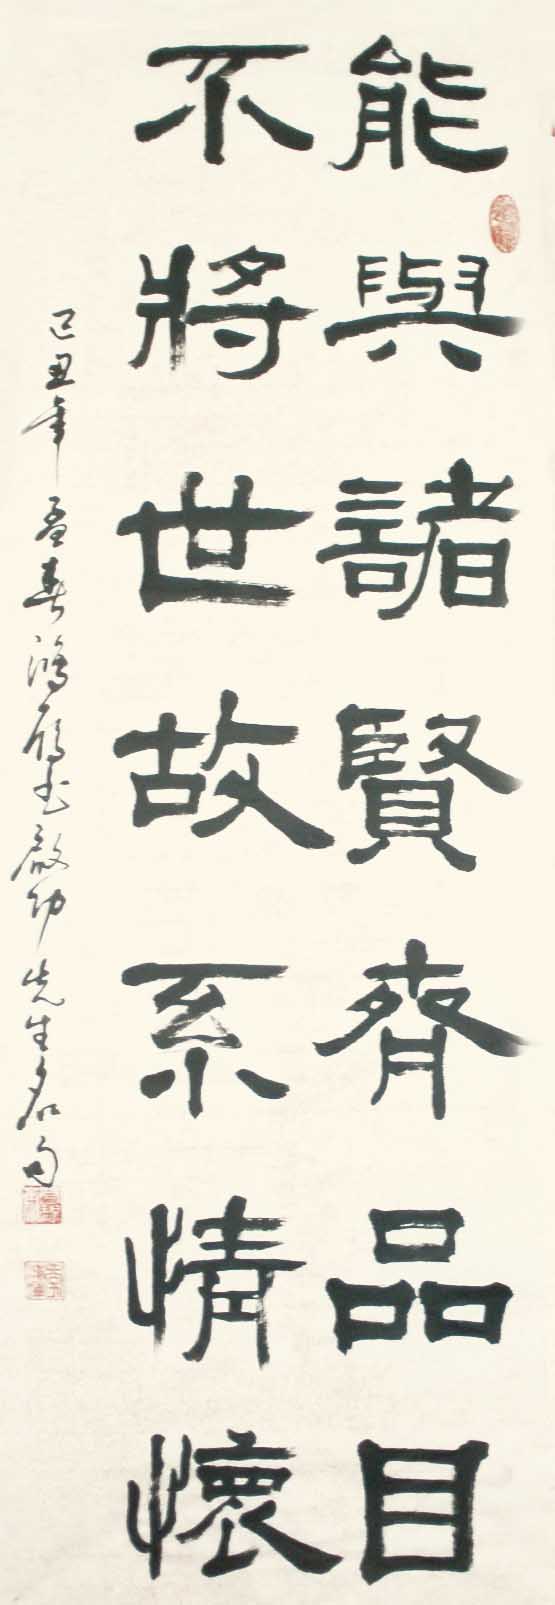 能與諸賢齊品目
不將世故系情懷
己丑年孟春鴻雁書啟功先生名句